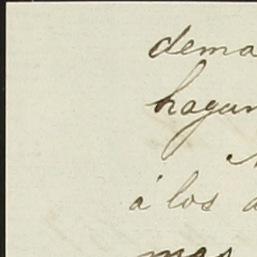 dema
hagan
á los
mas